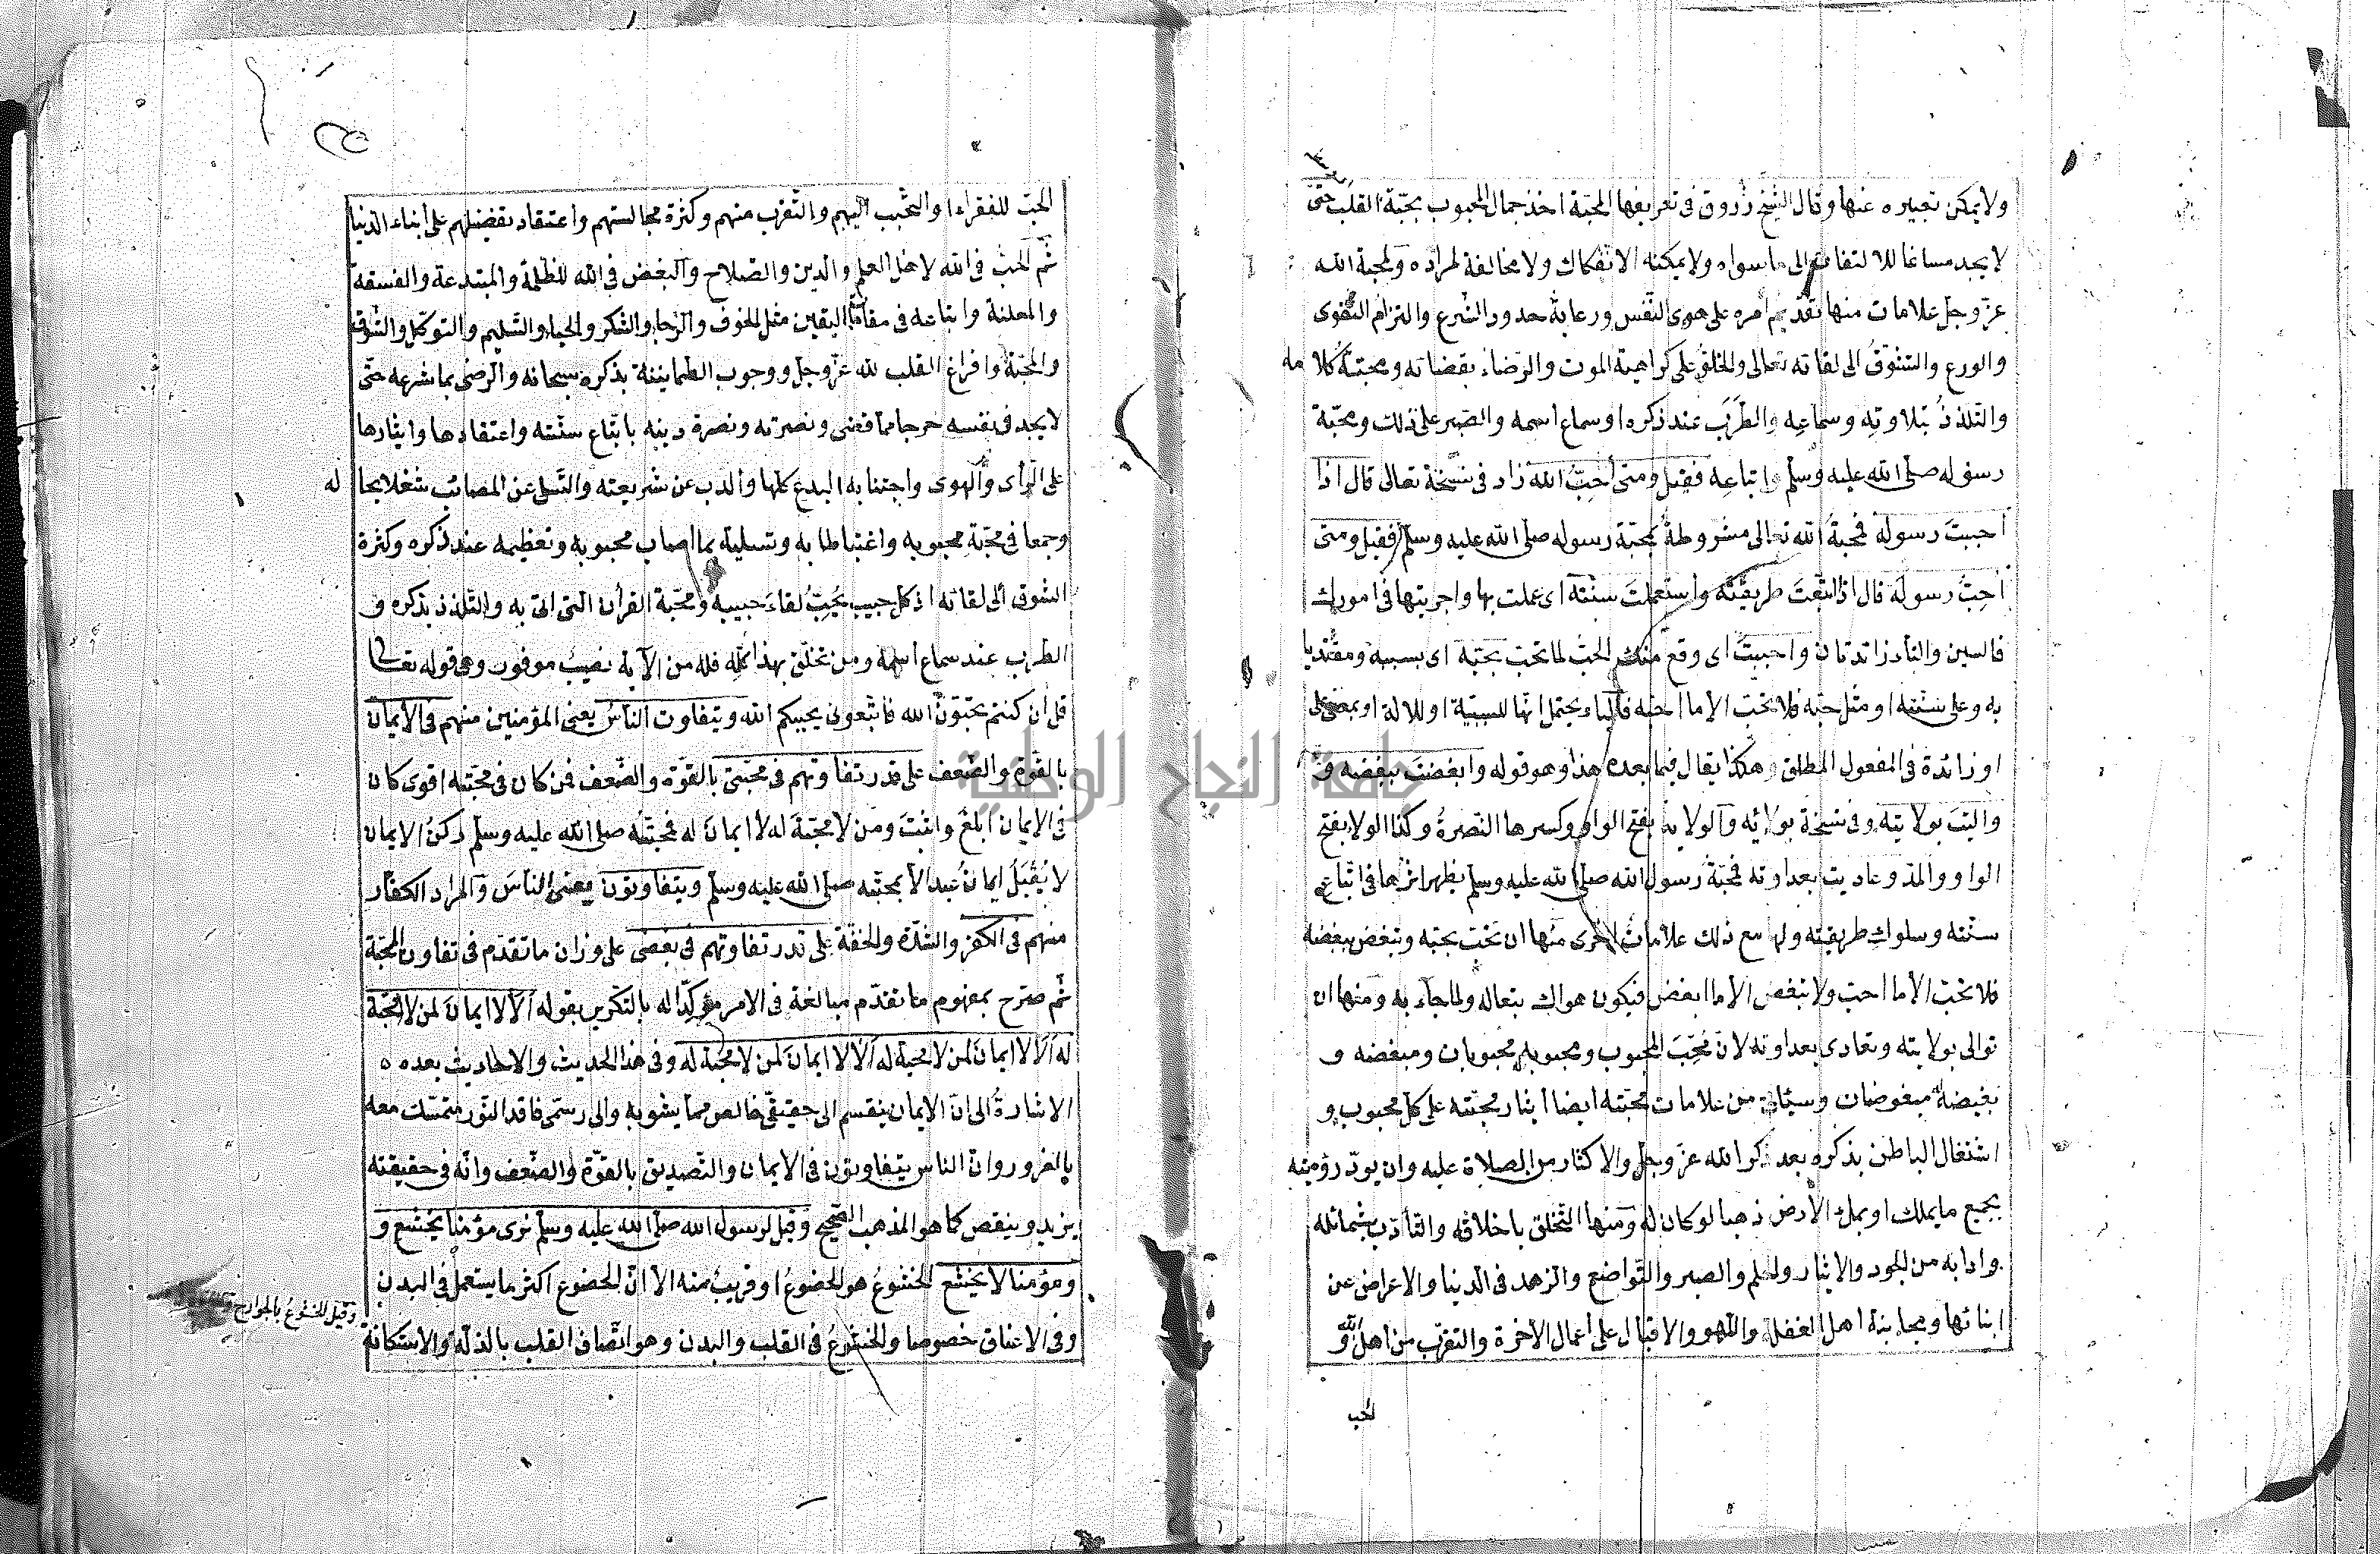 ولا يمكن تعبيره عنها وقال الشيخ زروق في تعريفها المحبة اخذ جمال المحبوب بحبة القلب حتى
لا يجد مساغا للالتفات الى ما سواه ولا يمكنه الانفكاك ولا مخالفة لمراده ولمحبة الله
عز وجل علامات منها تقديم امره على هوى النفس ورعاية حدود الشرع والتزام التقوى
والورع والتشوق الى لقائه تعالى والخلق على كراهية الموت والرضاء بقضائه ومحبة كلامه
والتلذذ بتلاوته وسماعه والطرب عند ذكره او سماع اسمه والصبر على ذلك ومحبة
رسوله صلى الله عليه وسلم واتباعه فقيل ومتى أحب الله زاد في نسخة تعالى قال اذا
احببت رسوله فمحبة الله تعالى مشروطة بمحبة رسوله صلى الله عليه وسلم فقيل ومتى
احب رسوله قال اذا اتبعت طريقته واستعملت سنته اى عملت بها واجريتها في امورك
فالسين والتاء زائدتان واحببت اى وقع منك الحب لما تحب بحبه اى بسببه ومقتديا
به وعلى سنته او مثل حبه فلا تحب الا ما احبه فالباء يحتمل انها للسببية او للالة او بمعنى على
او زائدة في المفعول المطلق وهكذا يقال فيما بعده هذا وهو قوله وابغضت ببغضه و
واليت بولايته وفي نسخة بولائه والولاية بفتح الواو وكسرها النصرة وكذا الولا بفتح
الواو والمد وعاديت بعداوته فمحبة رسول الله صلى الله عليه وسلم يظهر اثرها في اتباع
سنته وسلوك طريقته ولها مع ذلك علامات اخرى منها ان تحب بحبه وتبغض ببغضه
فلا تحب الا ما احب ولا تبغض الا ما ابغض فيكون هواك تبعا له ولما جآء به ومنها ان
توالى بولايته وتعادى بعداوته لان محب المحبوب ومحبوبه محبوبان ومبغضه و
بغيضه مبغوضان وسيئاتي من علامات محبته ايضا ايثار محبته على كل محبوب و
اشتغال الباطن بذكره بعد ذكر الله عز وجل والاكثار من الصلاة عليه وان يود رؤيته
بجميع ما يملك او بملء الأرض ذهبا لو كان له ومنها التخلق باخلاقه والتأدب بشمائله
وادابه من الجود والايثار والحلم والصبر والتواضع والزهد في الدنيا والاعراض عن
ابنائها ومجانبة اهل الغفلة واللهو والاقبال على اعمال الاخرة والتقرب من اهل الله و
الحب
الحب للفقراء والتحبب اليهم والتقرب منهم وكثرة مجالستهم واعتقاد تفضيلهم على أبناء الدنيا
ثم الحب في الله لاهل العلم والدين والصلاح والبغض في الله للظلمة والمبتدعة والفسقة
والمعلنة واتباعه في مقامات اليقين مثل الخوف والرجا والشكر والحيا والتسليم والتوكل والشوق
والمحبة وافراغ القلب لله عز وجل ووجوب الطمانينة بذكره سبحانه والرضى بما شرعه حتى
لا يجد في نفسه حرجا مما قضى ونصرته ونصرة دينه باتباع سنته واعتقادها وايثارها
على الرأى والهوى واجتنابه البدع كلها والذب عن شريعته والتسلى عن المصائب شغلا بحاله
وجمعا في محبة محبوبه واغتباطا به وتسلية بما اصاب محبوبه وتعظيمه عند ذكره وكثرة
الشوق الى لقائه اذ كل حبيب يحب لقاء حبيبه ومحبة القرأن التى اتى به والتلذذ بذكره و
الطرب عند سماع اسمه ومن تخلق بهذا كله فله من الآية نصيب موفور وهى قوله تعالى
قل ان كنتم تحبون الله فاتبعونى يحببكم الله ويتفاوت الناس يعنى المؤمنين منهم في الايمان
بالقوة والضعف على قدر تفاوتهم في محبتى بالقوة والضعف فمن كان في محبته اقوى كان
في الايمان ابلغ واثبت ومن لا محبة له لا ايمان له فمحبته صلى الله عليه وسلم ركن الايمان
لا يقبل ايمان عبد الا بمحبته صلى الله عليه وسلم ويتفاوتون يعنى الناس والمراد الكفار
منهم في الكفر والشدة والخفة على قدر تفاوتهم في بغضى على وزان ما تقدم في تفاوت المحبة
ثم صرح بمفهوم ما تقدم مبالغة في الامر مؤكدا له بالتكرير بقوله الا لا ايمان لمن لا محبة
له الا لا ايمان لمن لا محبة له الا لا ايمان لمن لا محبة له وفي هذا الحديث والاحاديث بعده ه
الاشارة الى ان الايمان ينقسم الى حقيقى خالص مما يشوبه والى رسمى فاقد النور متمسك معه
بالغرور وان الناس يتفاوتون في الايمان والتصديق بالقوة والضعف وانه في حقيقته
يزيد وينقص كما هو المذهب الصحيح وقيل لرسول الله صلى الله عليه وسلم نرى مؤمنا يخشع و
ومؤمنا لا يخشع الخشوع هو الخضوع او قريب منه الا ان الخضوع اكثر ما يستعمل في البدن
وفي الاعناق خصوصا والخشوع في القلب والبدن وهو اتصاف القلب بالذلة والاستكانة
وقيل الخشوع بالجوارح
جامعة النجاح الوطنية